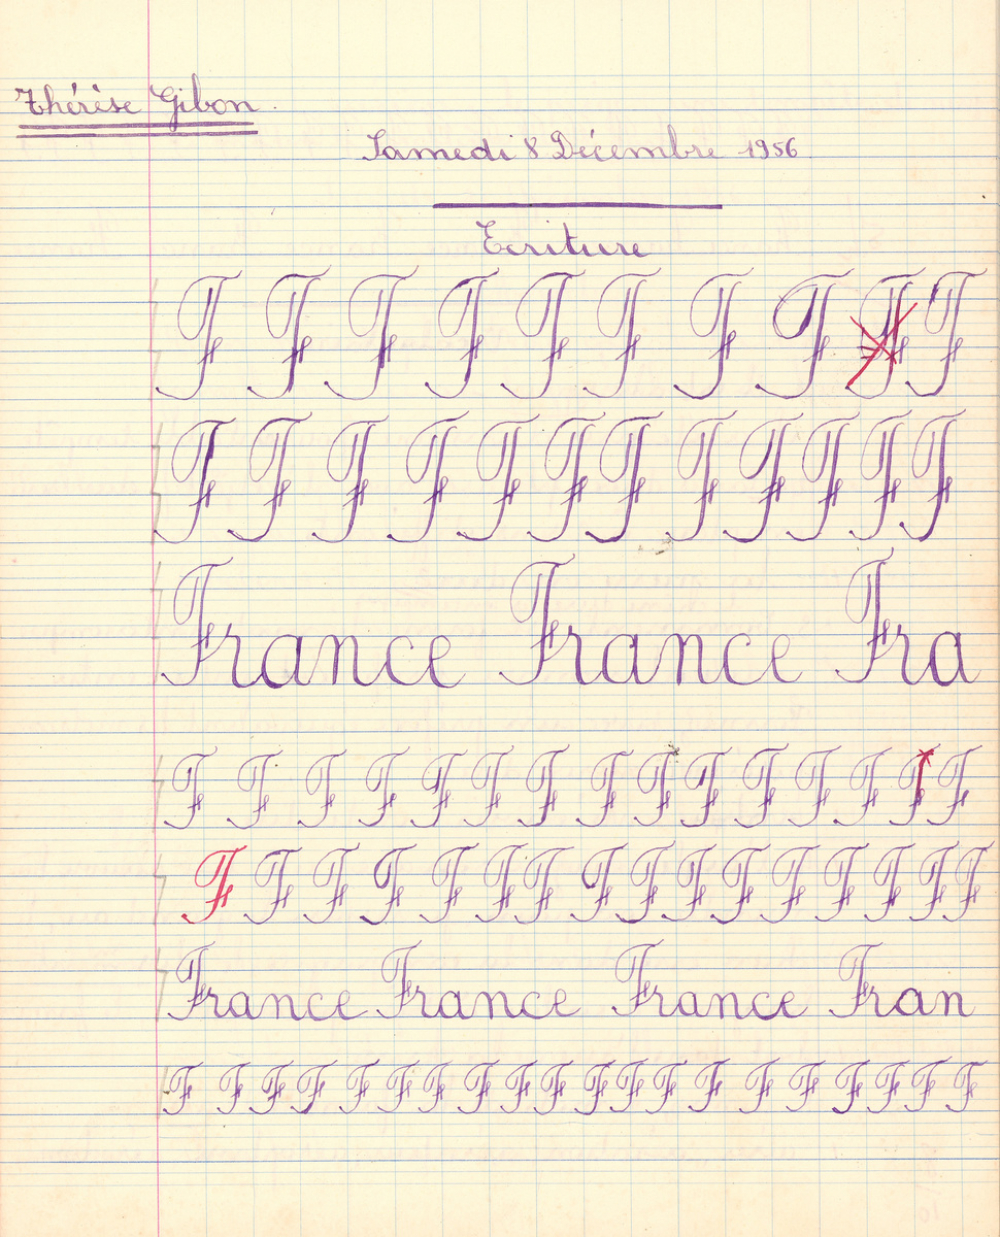 Thérèse Gibon
Samedi 8 Décembre 1956
Ecriture
F F F F F F F F F F
F F F F F F F F F F F F
France France Fra
F F F F F F F F F F F F F F F
F F F F F F F F F F F F F F F F
France France France Fran
F F F F F F F F F F F F F F F F F F F F